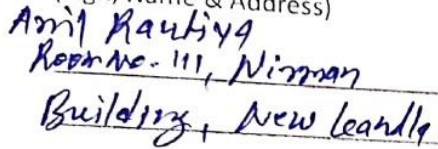 (Name & Address)
Anil Rautiya
Room No. 111, Nirman
Building, New Leandla